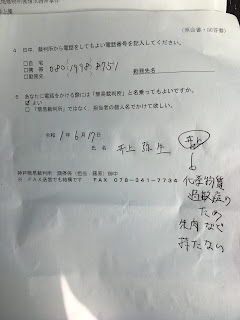 （照会書・回答書）
4 日中、裁判所から電話をしてもよい電話番号を記入してください。
□自 宅
□携 帯 080 1998 8951
□勤務先 勤務先名
5 あなたに電話をかける際には「簡易裁判所」と名乗ってもよいですか。
□ 「簡易裁判所」ではなく、担当者の個人名でかけて欲しい。
令和 1 年 6 月 17 日
氏 名 井上
神戸簡易裁判所
※ FAX送信でも結構です FAX 078-241-7734
井上
化学物質
過敏症の
ため
朱肉など
持たない